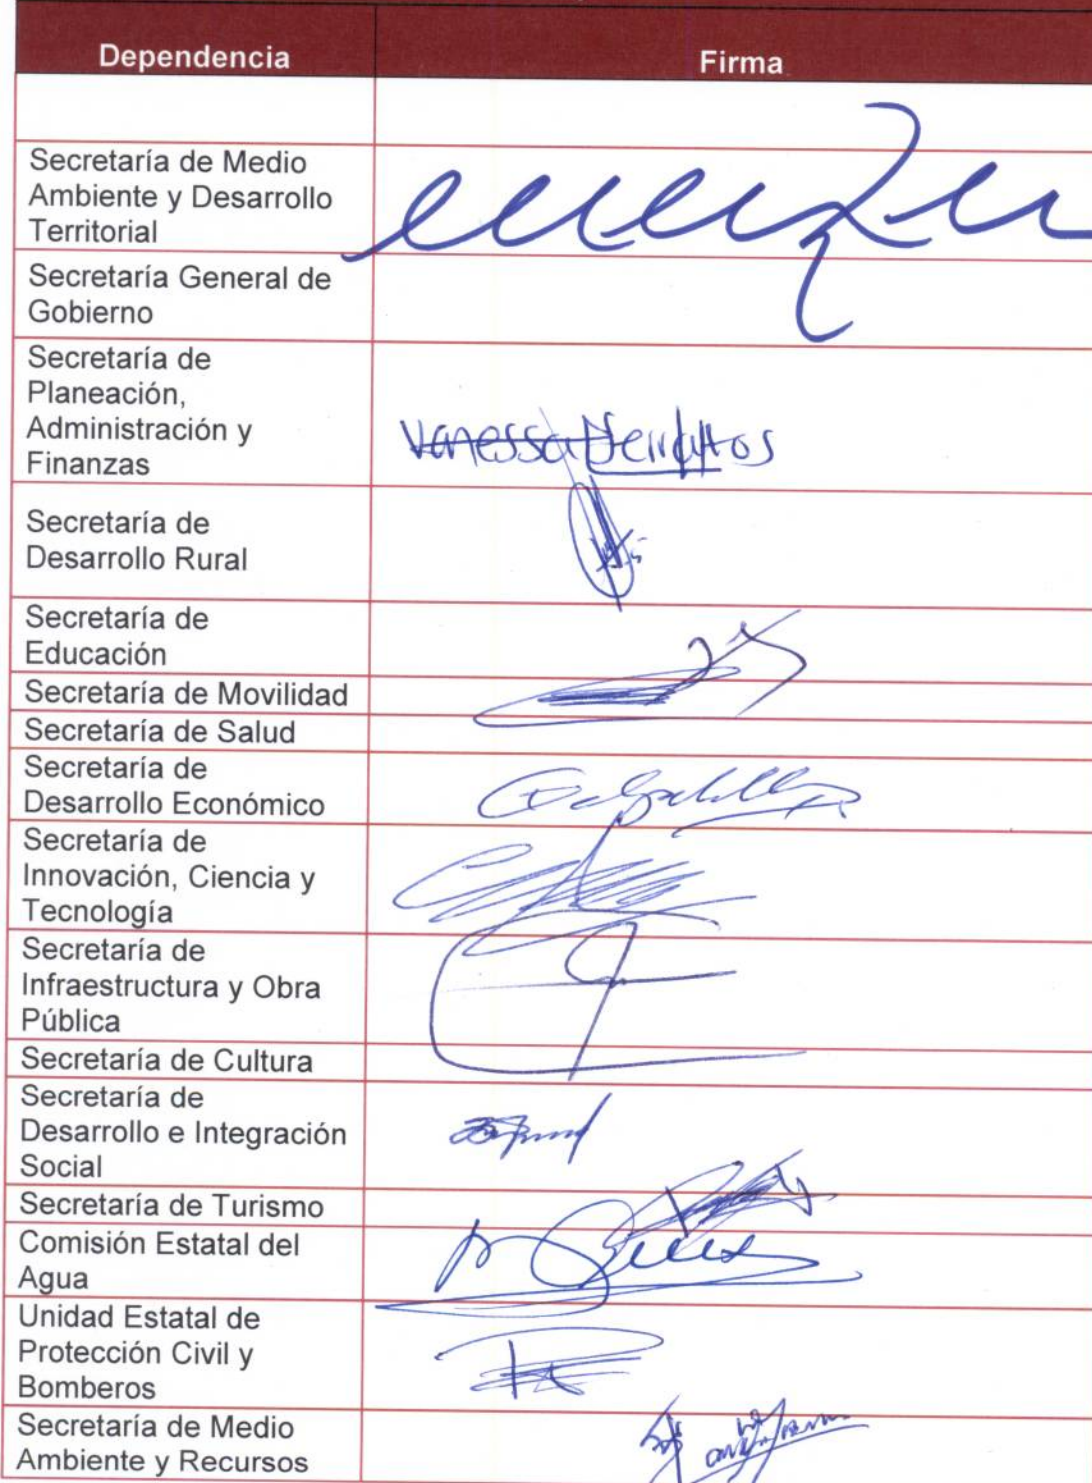 Dependencia Firma
Secretaría de Medio
Ambiente y Desarrollo
Territorial
Secretaría General de
Gobierno
Secretaría de
Planeación,
Administración y
Finanzas
Vanessa
Secretaría de
Desarrollo Rural
Secretaría de
Educación
Secretaría de Movilidad
Secretaría de Salud
Secretaría de
Desarrollo Económico
Secretaría de
Innovación, Ciencia y
Tecnología
Secretaría de
Infraestructura y Obra
Pública
Secretaría de Cultura
Secretaría de
Desarrollo e Integración
Social
Secretaría de Turismo
Comisión Estatal del
Agua
Unidad Estatal de
Protección Civil y
Bomberos
Secretaría de Medio
Ambiente y Recursos